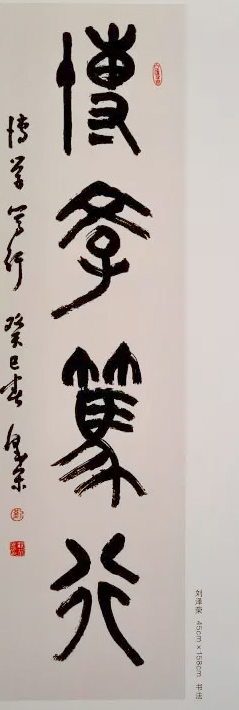 博斈篤行
博学笃行 癸巳春 泽荣
刘泽荣 45cm×158cm 书法